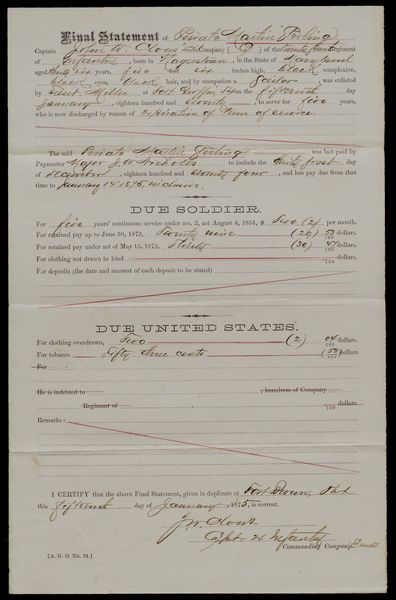 Final Statement of Private Martin Pertling
Captain John W. Clous Company ( ) of the Regiment
of Infantry, born in Hagerstown, in the State of Maryland
aged thirty six years, five feet six inches high, black complexion,
black eyes, black hair, and by occupation a Sailor, was enlisted
by Lieut. Miller at Fort Griffin on the fifteenth day
January, eighteen hundred and seventy, to serve for five years,
who is now discharged by reason of Expiration of Term of service.
The said Private Martin Pertling was last paid by
Paymaster Major J. W. Nicholls to include the thirty first day
of December, eighteen hundred and seventy four, and has pay due from that
time to January 14 1875, inclusive.
DUE SOLDIER.
For five years' continuous service under sec. 2, act August 4, 1854, $ Two (2) per month.
For retained pay up to June 30, 1872, Twenty nine (29) dollars.
For retained pay under act of May 15, 1872, Thirty (30) dollars.
For clothing not drawn in kind dollars.
For deposits (the date and amount of each deposit to be stated)
DUE UNITED STATES.
For clothing overdrawn, Two (2) 04/100 dollars.
For tobacco Fifty three cents (53/100) dollars
For
He is indebted to , laundress of Company
Regiment of dollars.
Remarks:
I CERTIFY that the above Final Statement, given in duplicate at Fort Brown, Texas
this fifteenth day of January 1875, is correct.
J. W. Clous.
Capt. 24 Infantry
Commanding Company.
[A. G. O. No. 94.]